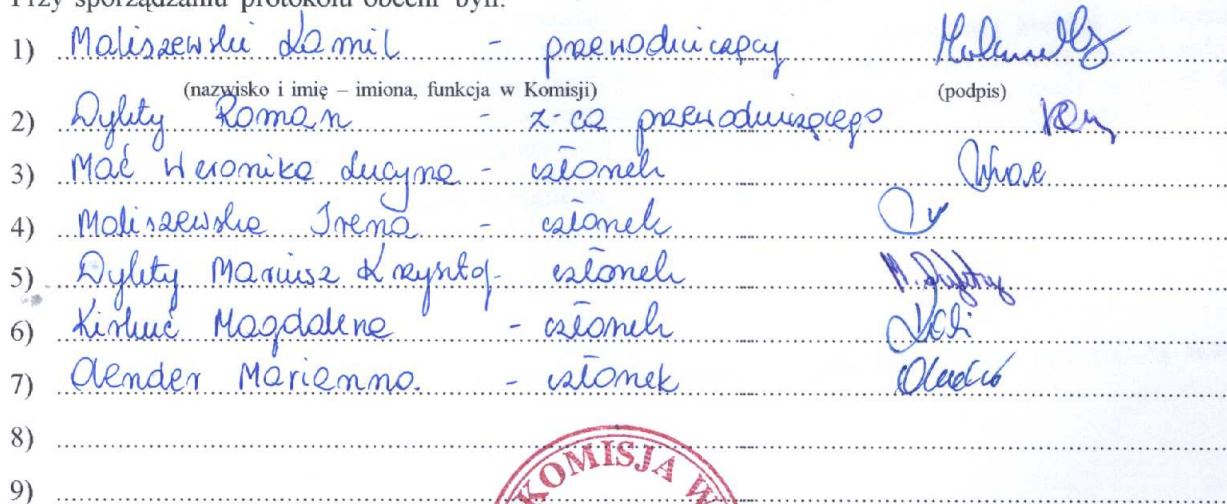 Przy sporządzaniu protokołu obecni byli:
1) Maliszewski Kamil - przewodniczący
(nazwisko i imię – imiona, funkcja w Komisji) (podpis)
2) Dylity Roman - z-ca przewodniczącego
3) Mać Weronika Lucyna - członek
4) Maliszewska Irena - członek
5) Dylity Mariusz Krzysztof - członek M. Dylity
6) Magdalena - członek
7) Marianna - członek
8)
9)
KOMISJA W